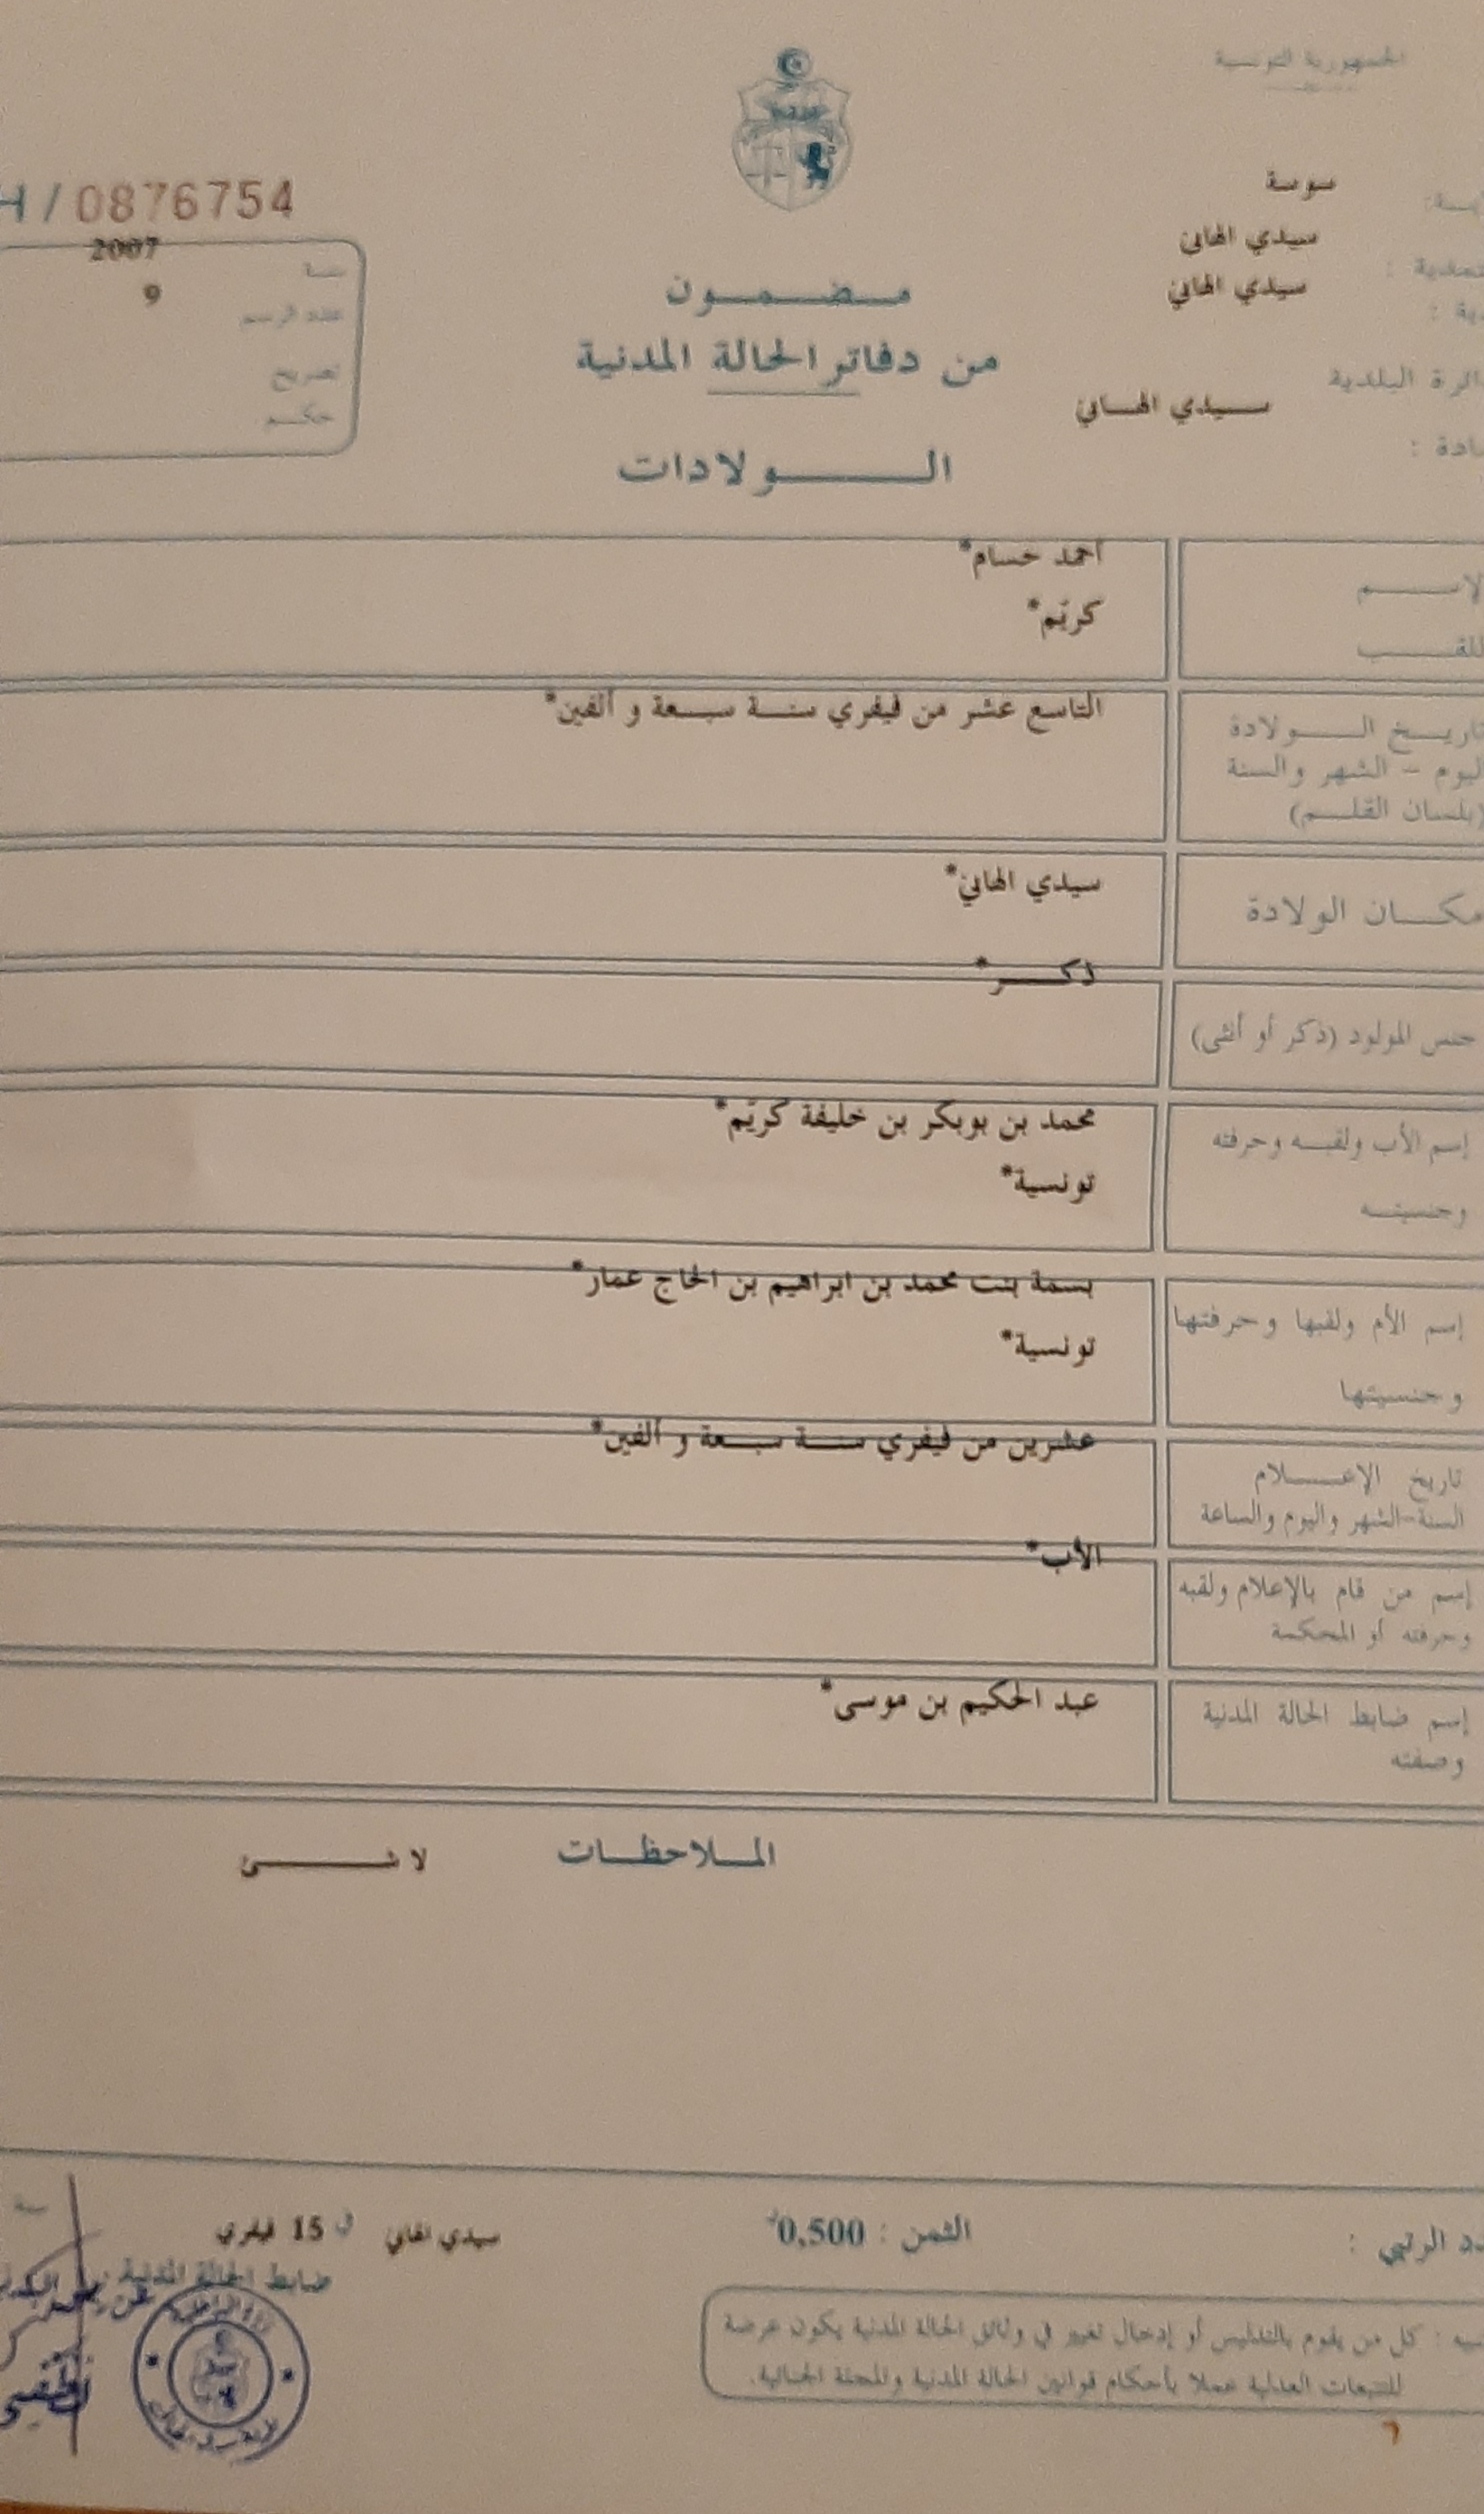 الجمهورية التونسية
سوسة
سيدي الهاني
سيدي الهاني
ـائرة البلدية
سيدي الهاني
ـادة :
H / 0876754
سنة 2007
عدد الرسم 9
تصريح
حكم
مضمون
من دفاتر الحالة المدنية
الولادات
الاسم احمد حسام*
اللقب كريّم*
تاريخ الولادة التاسع عشر من فيفري سنة سبعة و ألفين*
اليوم - الشهر والسنة
(بلسان القلم)
مكان الولادة سيدي الهاني*
جنس المولود (ذكر أو أنثى) ذكر*
إسم الأب ولقبه وحرفته محمد بن بوبكر بن خليفة كريّم*
وجنسيته تونسية*
إسم الأم ولقبها وحرفتها بسمة بنت محمد بن ابراهيم بن الحاج عمار*
وجنسيتها تونسية*
تاريخ الإعلام عشرين من فيفري سنة سبعة و ألفين*
السنة-الشهر واليوم والساعة
إسم من قام بالإعلام ولقبه الأب*
وحرفته أو المحكمة
إسم ضابط الحالة المدنية عبد الحكيم بن موسى*
وصفته
الملاحظات لا شئ
ـدد الرتبي : الثمن : 0,500د سيدي الهاني في 15 فيفري سنة
ضابط الحالة المدنية
ـبيه : كل من يقوم بالتدليس أو إدخال تغيير في وثائق الحالة المدنية يكون عرضة
للتتبعات العدلية عملا بأحكام قوانين الحالة المدنية والمجلة الجنائية.